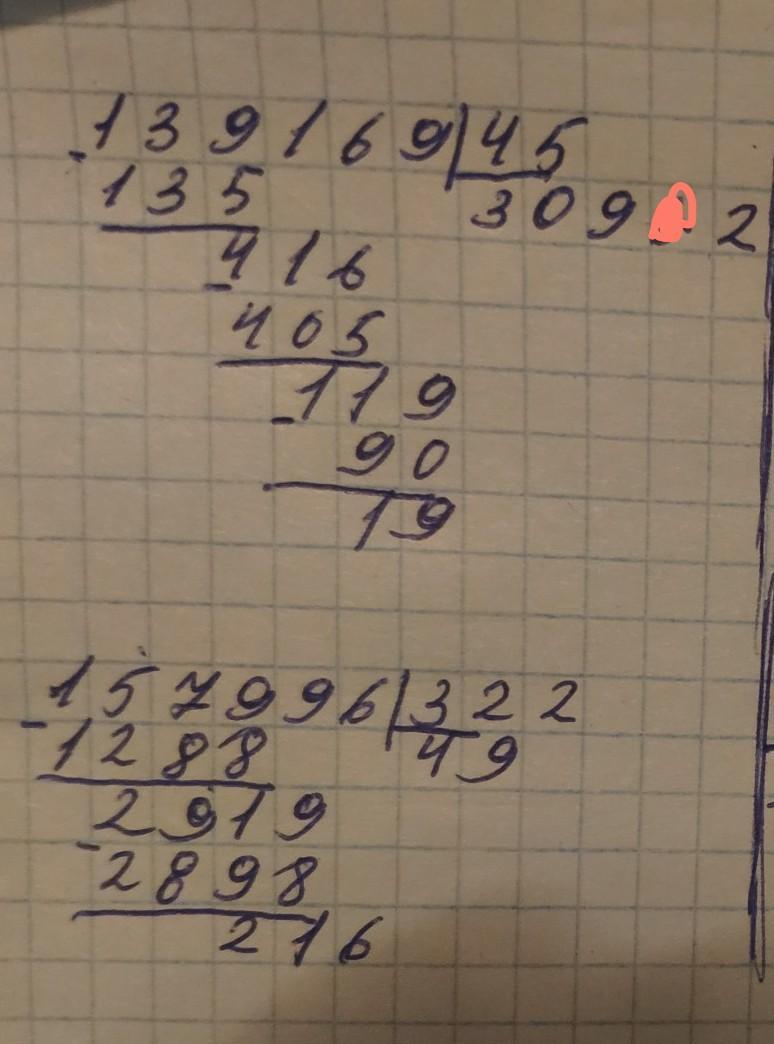 139169 45
135 309 2
416
405
119
90
19
157996 322
1288 49
2919
2898
216